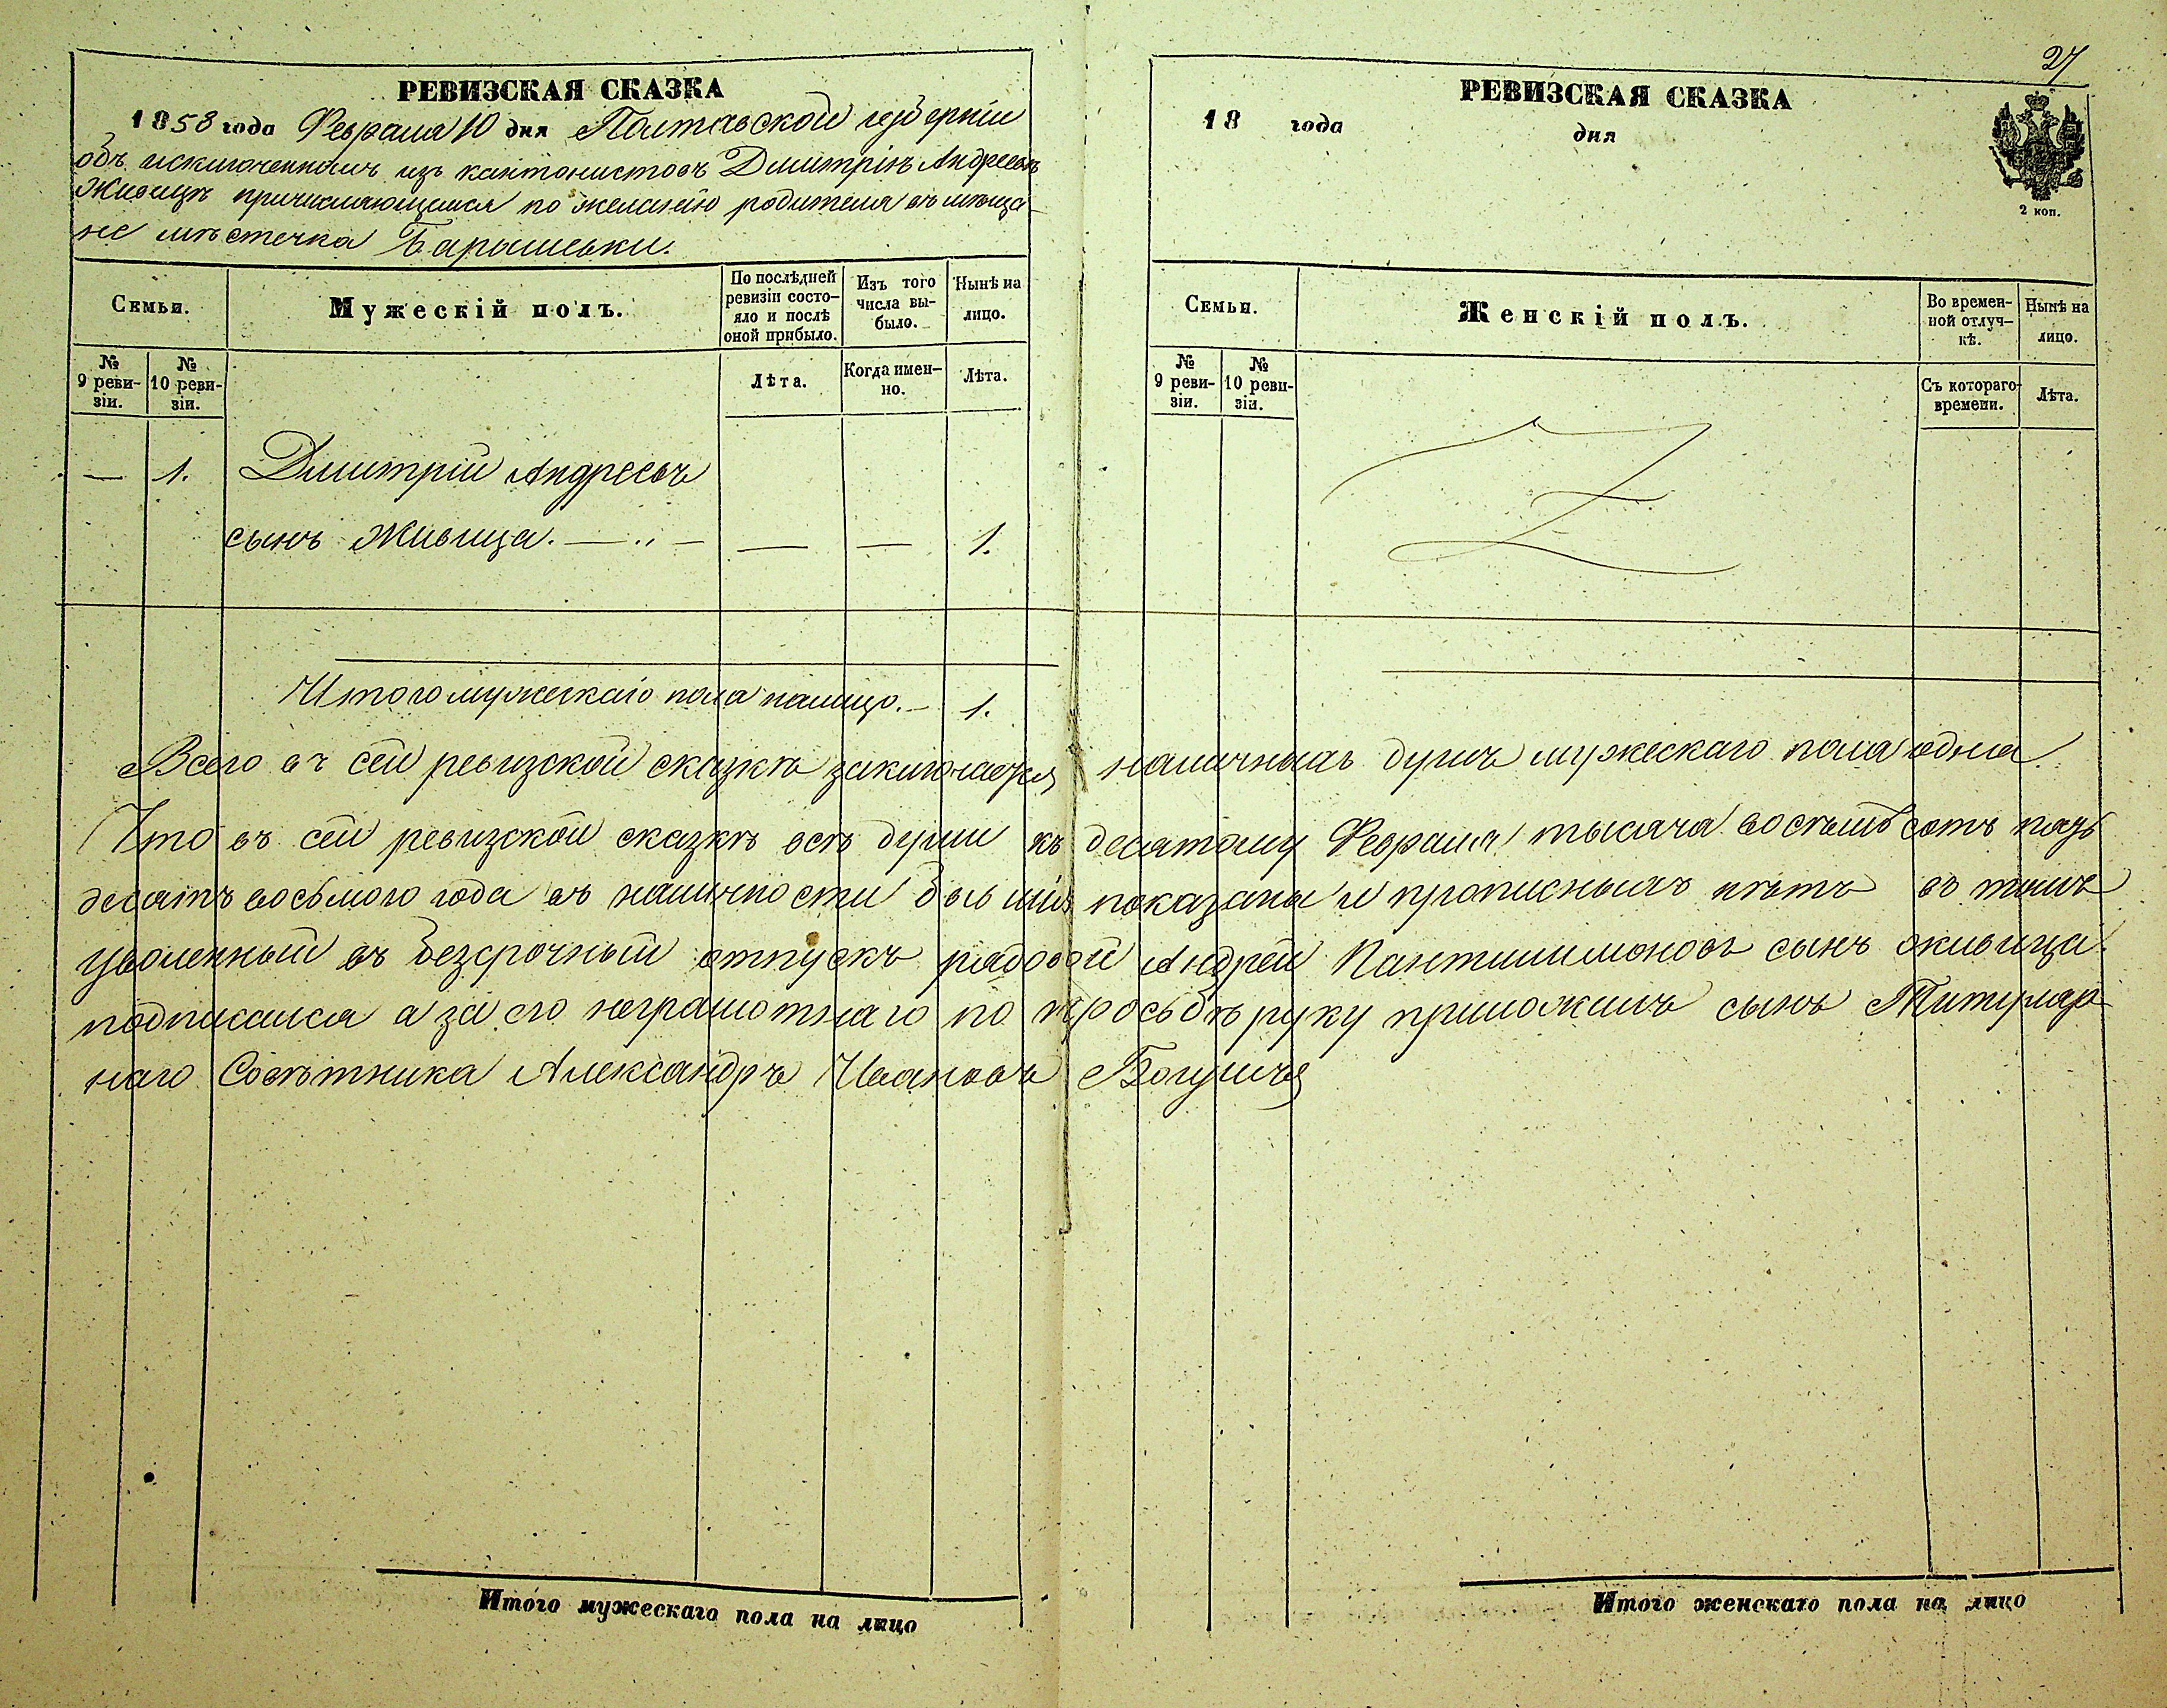 27
РЕВИЗСКАЯ СКАЗКА
1858 года Февраля 10 дня Полтавской губерніи
объ исключенномъ изъ кантонистовъ Димитріѣ Андреевѣ
Живицѣ причисляющемся по желанію родителя въ мѣща-
не мѣстечка Барышевки.
Семьи.
Мужескій полъ.
По послѣдней ревизіи состо-
яло и послѣ оной прибыло.
Изъ того числа вы-
было.
Нынѣ на лицо.
№ 9 реви-
зіи.
№ 10 реви-
зіи.
Лѣта.
Когда имен-
но.
Лѣта.
— 1. Димитрій Андреевъ
сынъ Живица. — „ — — — 1.
Итого мужескаго пола налицо. — 1.
РЕВИЗСКАЯ СКАЗКА
18 года дня
2 коп.
Семьи.
Женскій полъ.
Во времен-
ной отлуч-
кѣ.
Нынѣ на лицо.
№ 9 реви-
зіи.
№ 10 реви-
зіи.
Съ котораго времени.
Лѣта.
Всего въ сей ревизской сказкѣ заключается наличныхъ душъ мужескаго пола одна.
Что въ сей ревизской сказкѣ всѣ души къ десятому Февраля тысяча восемьсотъ пядь
десятъ восьмого года въ наличности бывшія показаны и прописныхъ нѣтъ въ томъ
уволенный въ безсрочный отпускъ рядовой Андрей Пантилимоновъ сынъ Живица.
подписался а за его неграмотнаго по просьбѣ руку приложилъ сынъ Титуляр-
наго Совѣтника Александръ Ивановъ
Итого мужескаго пола на лицо
Итого женскаго пола на лицо